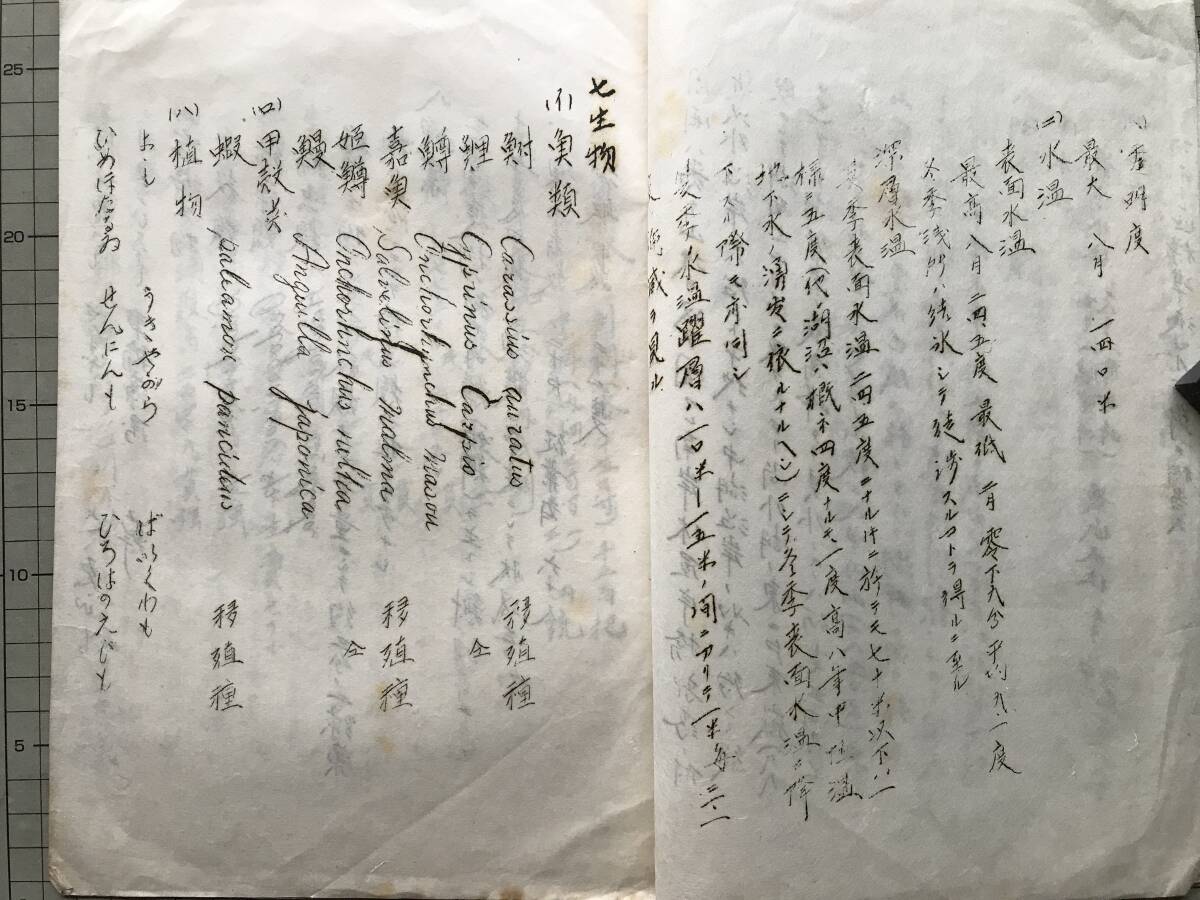 透明度
最大 八月 一四〇米
(ニ)水温
表面水温
最高 八月 二四、五度 最低 二月 零下九分 平均 九、一度
冬季浅所ハ結氷シテ徒渉スルコトヲ得ルニ至ル
深層水温
夏季表面水温二四五度ニナルトキニ於テモ七十米以下ハ一
様ニ五度(他湖沼ハ概ネ四度ナルモ一度高ハ年中恒温
地下水ノ湧出ニ依ルナルヘシ)ニシテ冬季表面水温ニ降
下スル際モ亦同シ
夏季水温躍層ハ一〇米ー一五米ノ間ニアリテ一米毎ニ二、一
減ヲ見ル
七生物
(イ)魚類
鮒 Carassius auratus 移殖種
鯉 Cyprinus Carpio 仝
鱒 Onchorhynchus Masou
嘉魚 Salvelinus 移殖種
姫鱒 Onchorhnchus nulka 仝
鰻 Anguilla japonica
(ロ)甲殻类
蝦 palamon paucidus 移殖種
(ハ)植物
よし うきやがら ばいくわも
ひめほたるゐ せんにんも ひろはのえびも